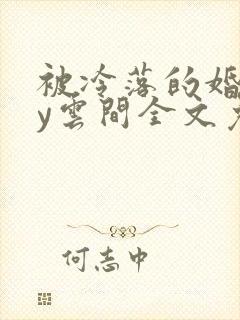 被冷落的婚
y雲間全文
何志中